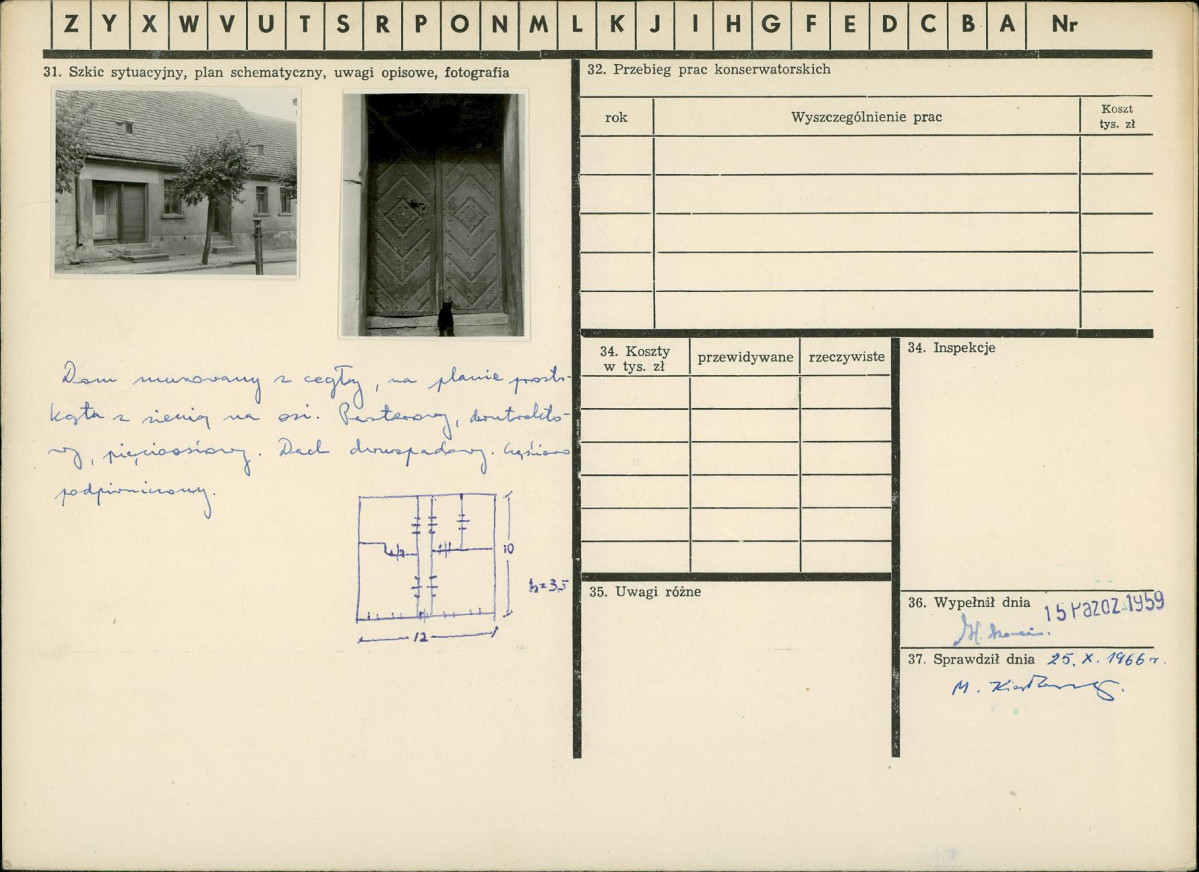 Z Y X W V U T S R P O N M L K J I H G F E D C B A Nr
31. Szkic sytuacyjny, plan schematyczny, uwagi opisowe, fotografia
Dom murowany z cegły, na planie prosto-
kąta z sienią na osi. Parterowy, dwutrakto-
wy, pięcioosiowy. Dach dwuspadowy. Częściowo
podpiwniczony.
10
h=3,5
12
32. Przebieg prac konserwatorskich
rok
Wyszczególnienie prac
Koszt
tys. zł
34. Koszty
w tys. zł
przewidywane
rzeczywiste
34. Inspekcje
35. Uwagi różne
36. Wypełnił dnia 15 PAZDZ. 1959
37. Sprawdził dnia 25. X. 1966 r.
M.